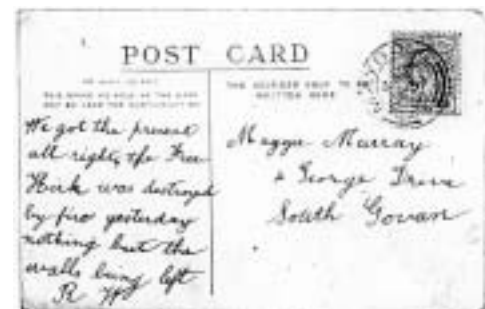 POST CARD
THE ADDRESS ONLY TO BE
WRITTEN HERE
We got the present
all right, the Free
Kirk was destroyed
by fire yesterday
nothing but the
walls being left
Maggie Murray
4 George Drive
South Govan